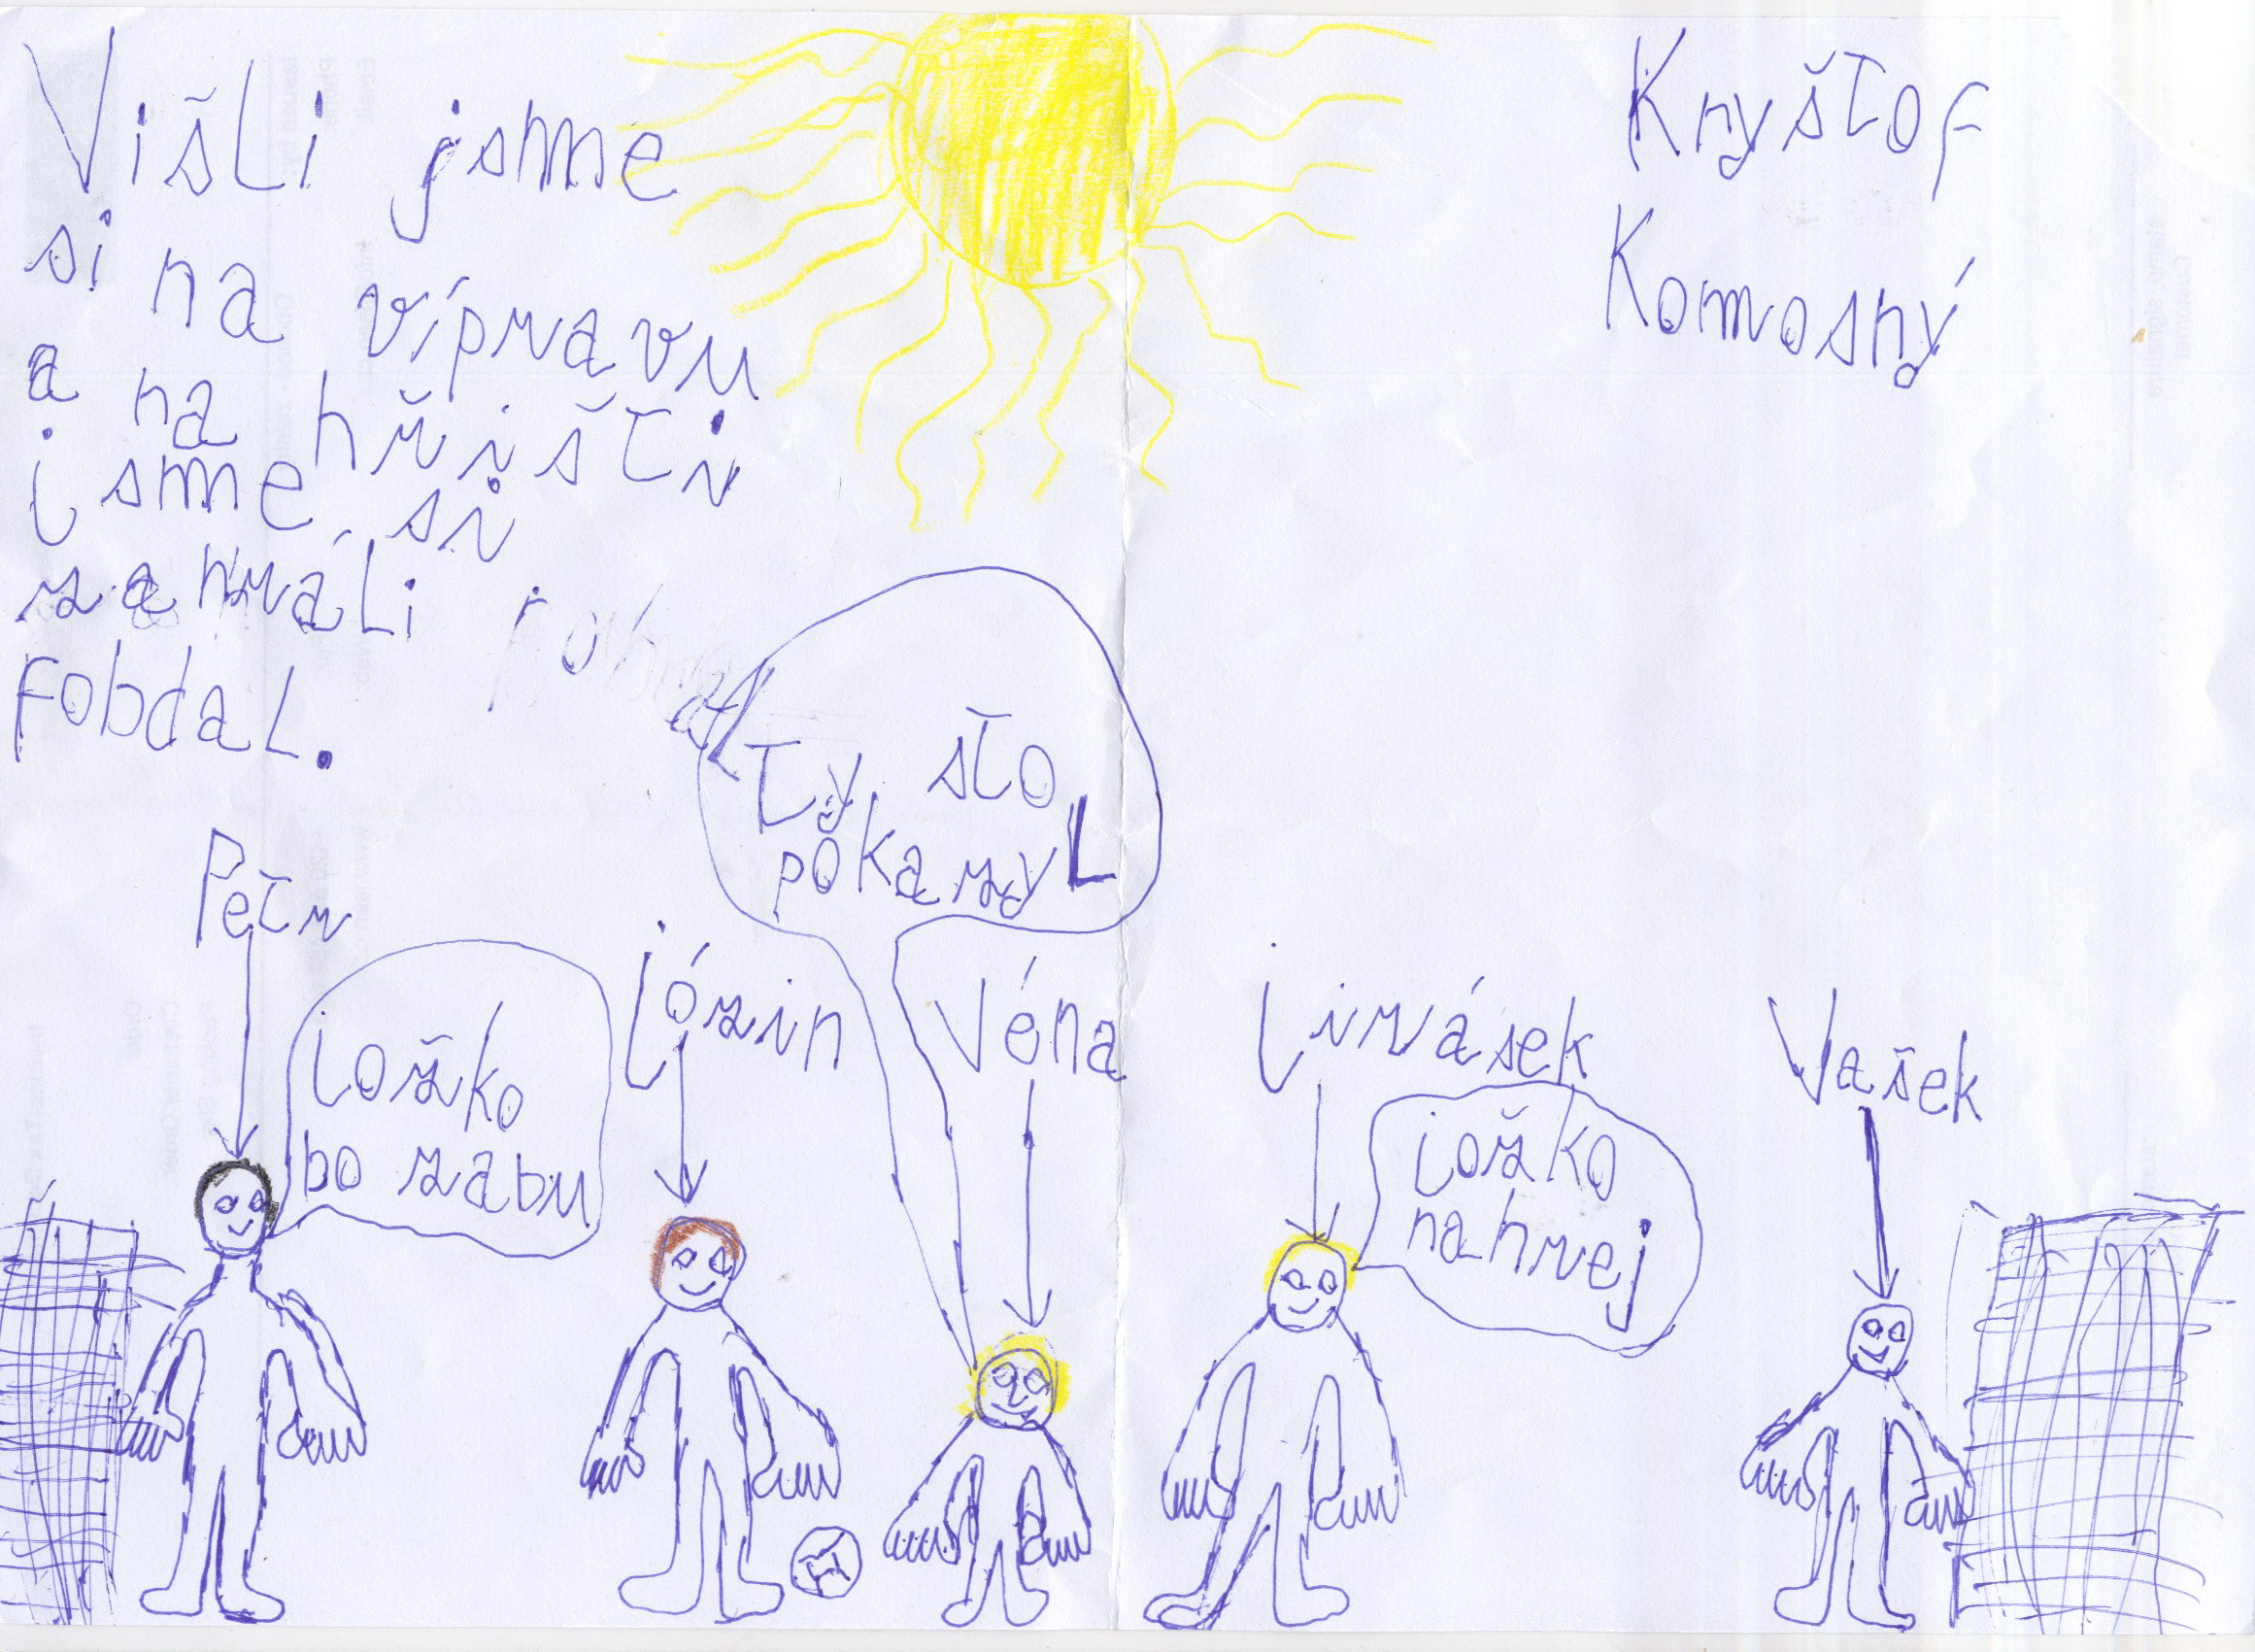 Višli jsme
si na vípravu
a na hřišti
jsme si
zahráli
fobdal.
Kryštof
Komosný
Ty sto
pokazyl
Petr
Jožko
bo zabu
Józin
Véna
Jirásek
Jožko
nahrej
Vašek